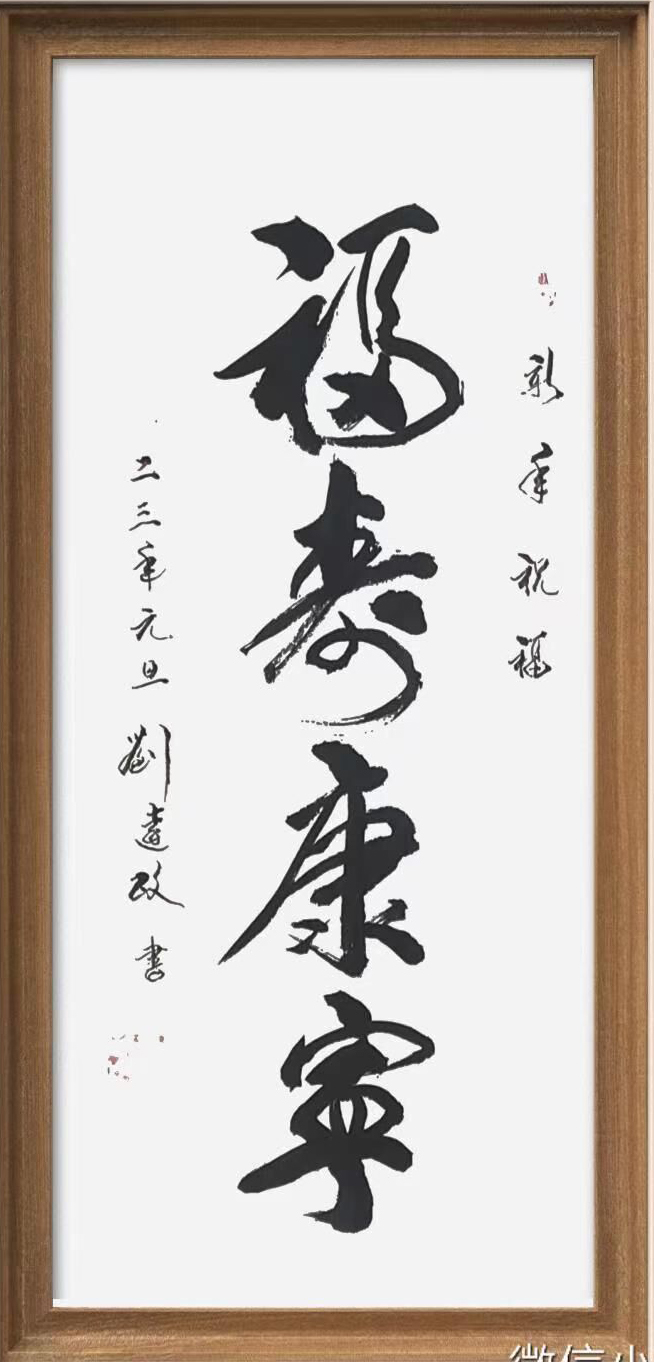 新年祝福
福寿康寧
二三年元旦劉遠政書
微信小